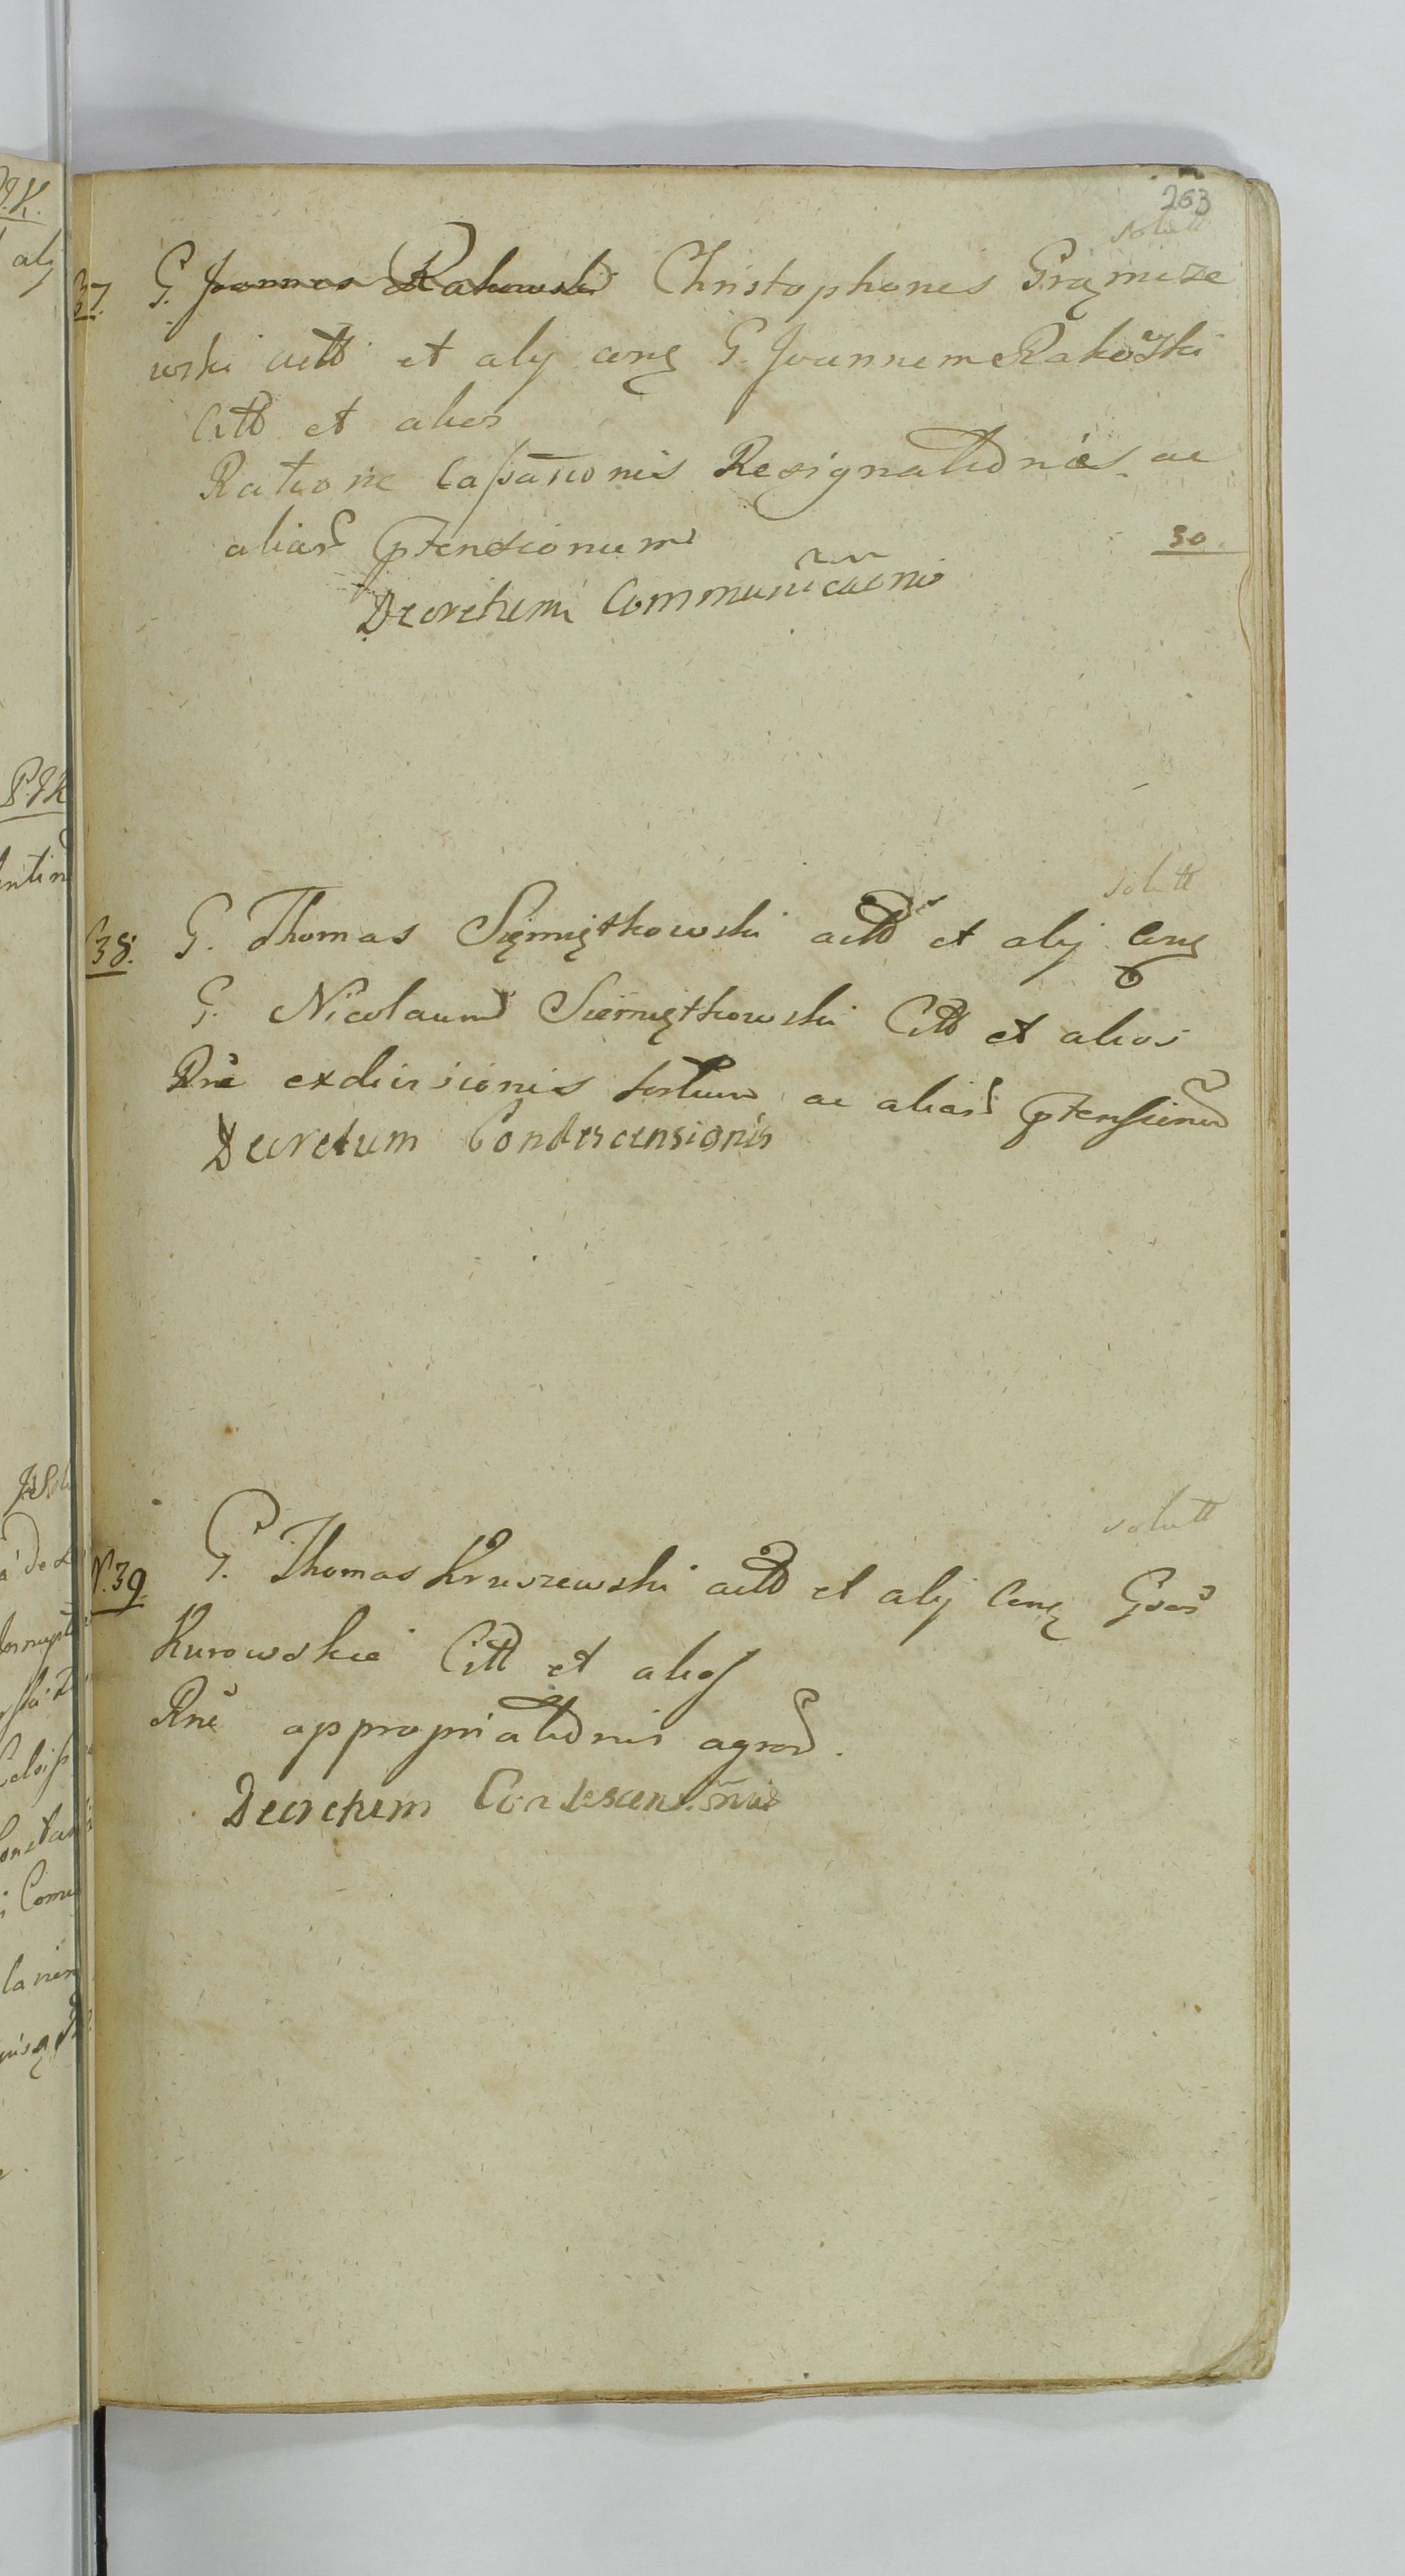 263
solutt
37. G. Joannes Rakowski Christophorus Grąmize
wski actt et alij cong G. Joannem Rakowski
Citt et alios
Ratione Cassationis Resignationis ac
aliarū ptensionum
30
Decretum Communicaōnis
solutt
38. G. Thomas Sięmiątkowski actt et alij Cong
G. Nicolaum Siemiątkowski Citt et alios
Rnē exdivisionis sortium ac aliarū ptensionū
Decretum Condescensionis
solutt
N. 39. G. Thomas Kruszewski actt et alij Cong Gsos
Kurowskie Citt et alios
Rnē appropriationis agrorū.
Decretum Condescensnis